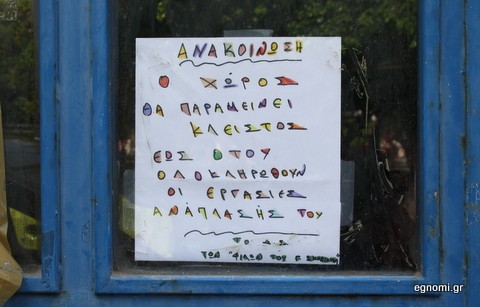 ΑΝΑΚΟΙΝΩΣΗ
Ο ΧΩΡΟΣ
ΘΑ ΠΑΡΑΜΕΙΝΕΙ
ΚΛΕΙΣΤΟΣ
ΕΩΣ ΟΤΟΥ
ΟΛΟΚΛΗΡΩΘΟΥΝ
ΟΙ ΕΡΓΑΣΙΕΣ
ΑΝΑΠΛΑΣΗΣ ΤΟΥ
ΤΟ Δ.Σ
ΤΩΝ "ΦΙΛΩΝ ΤΟΥ
egnomi.gr